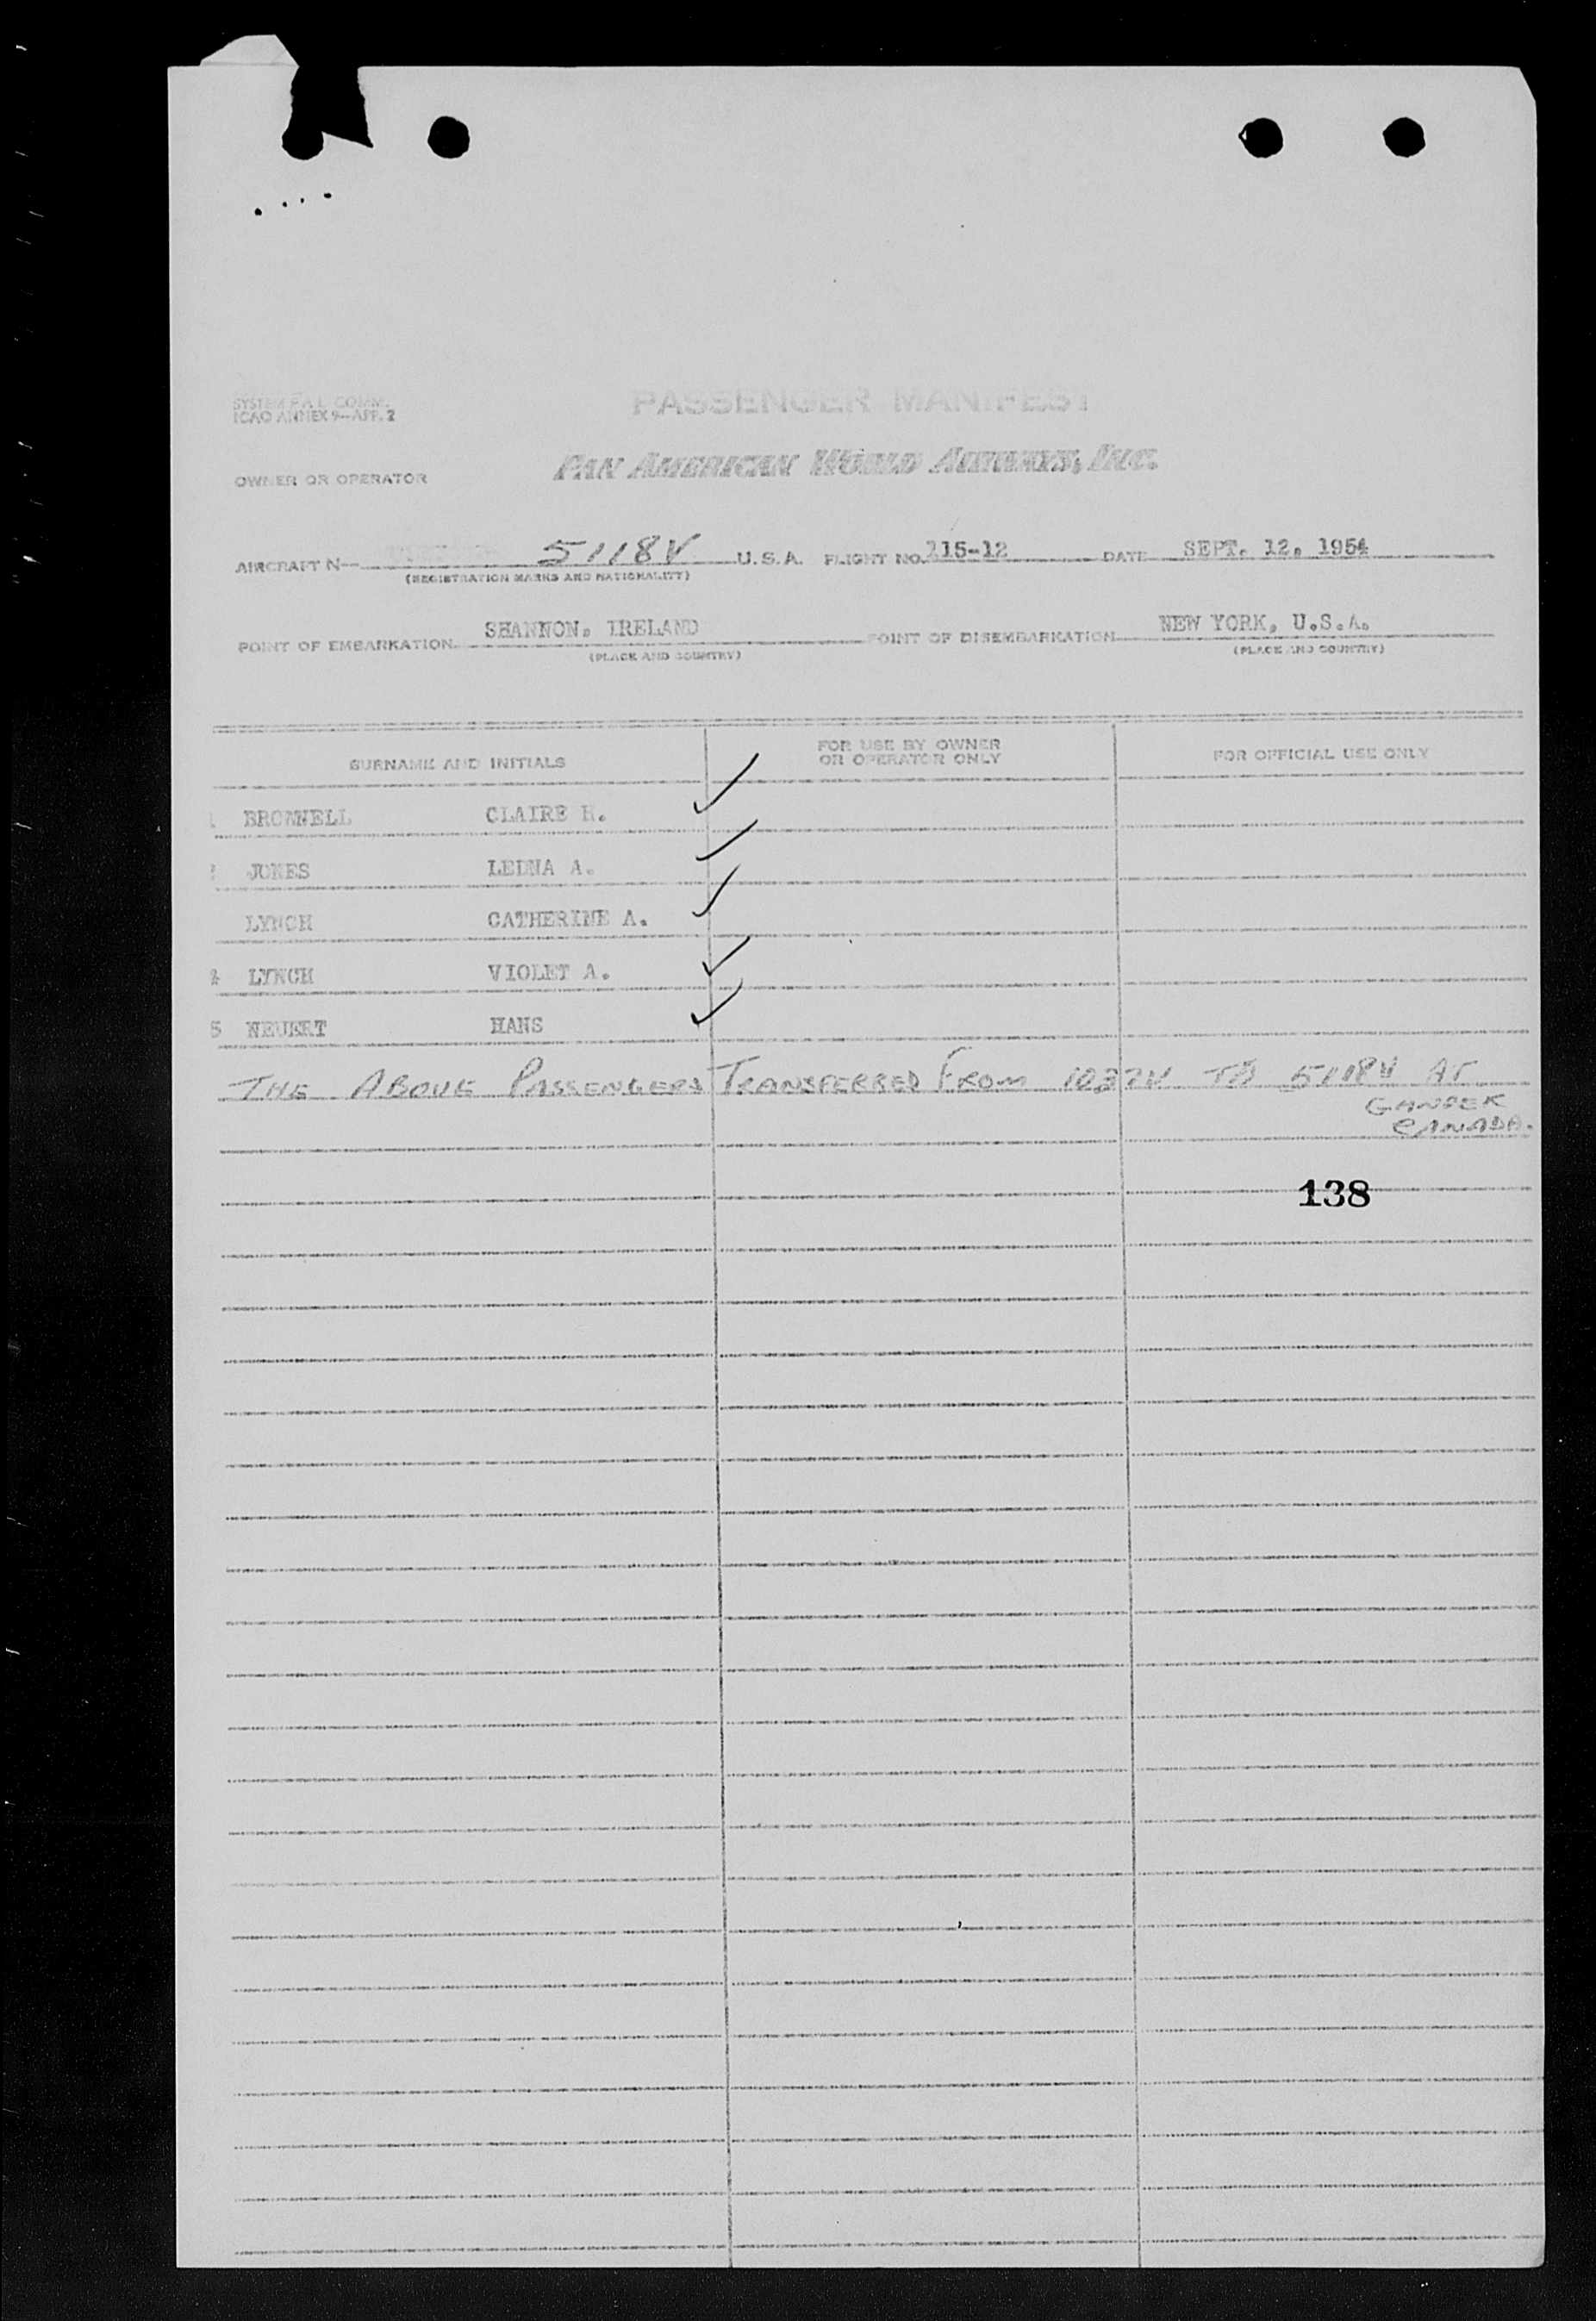 SYSTEM F.A.L. COMM.
ICAO ANNEX 9—APP. 2
PASSENGER MANIFEST
OWNER OR OPERATOR
PAN AMERICAN WORLD AIRWAYS, INC.
AIRCRAFT N— 5118V U.S.A. FLIGHT NO. 115-12 DATE SEPT. 12, 1954
(REGISTRATION MARKS AND NATIONALITY)
POINT OF EMBARKATION SHANNON, IRELAND POINT OF DISEMBARKATION NEW YORK, U.S.A.
(PLACE AND COUNTRY) (PLACE AND COUNTRY)
SURNAME AND INITIALS FOR USE BY OWNER OR OPERATOR ONLY FOR OFFICIAL USE ONLY
1 BROWNELL CLAIRE H. ✓
2 JONES LEDNA A. ✓
LYNCH CATHERINE A. ✓
4 LYNCH VIOLET A. ✓
5 NEUERT HANS ✓
THE ABOVE PASSENGERS TRANSFERRED FROM 1027V TO 5118V AT
GANDER
CANADA.
138